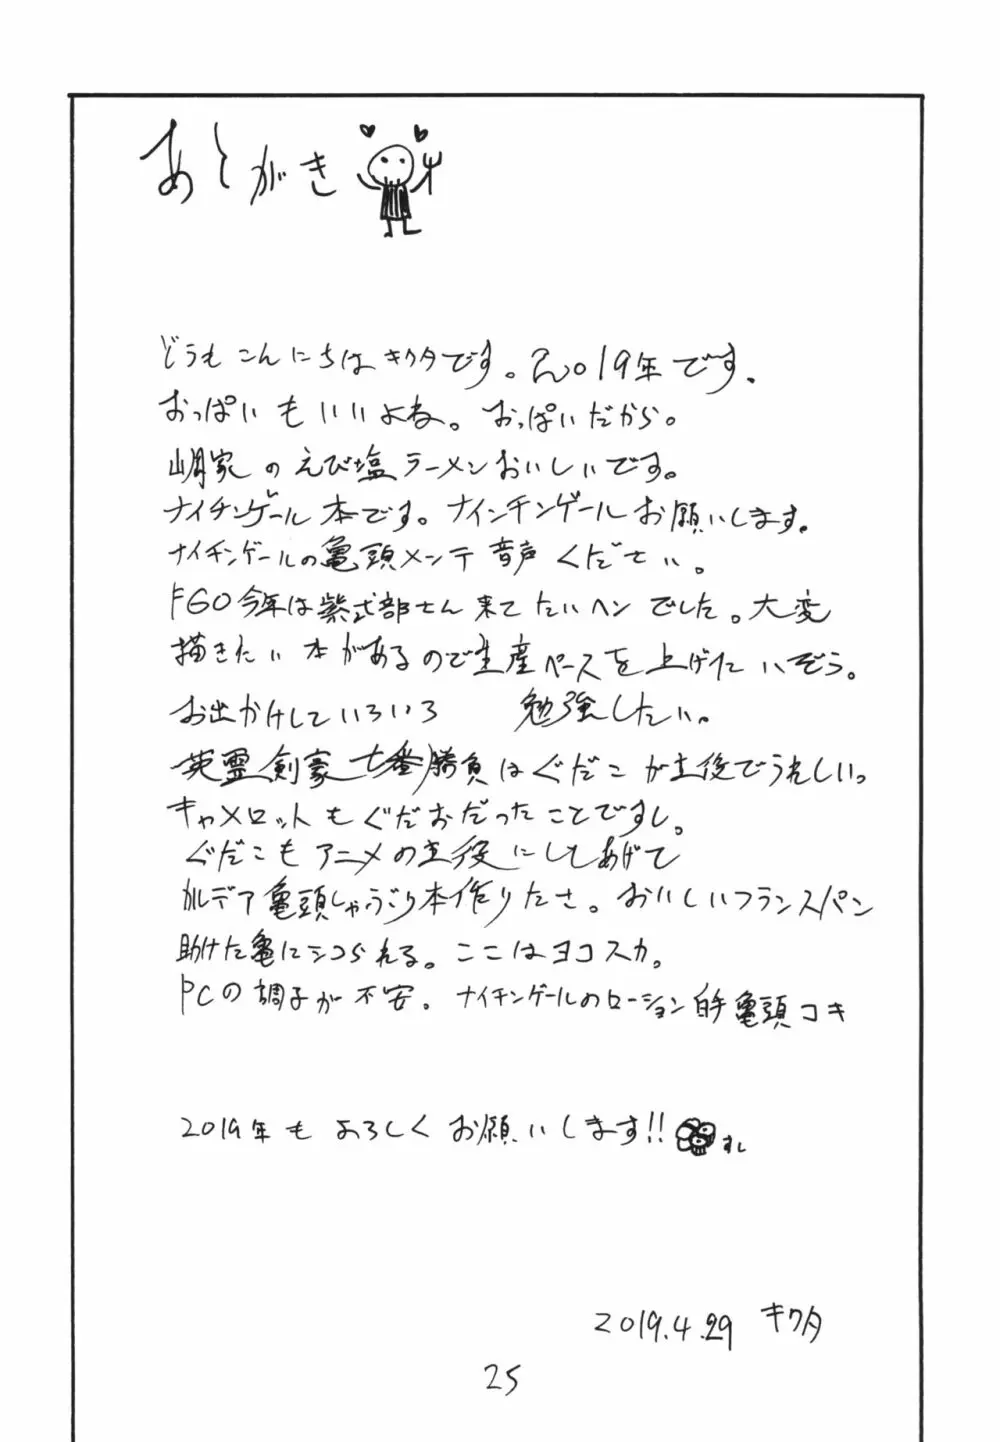 あとがき
どうもこんにちはキクタです。2019年です.
おっぱいもいいよね。おっぱいだから。
山岡家のえび塩ラーメンおいしいです。
ナイチンゲール本です。ナインチンゲールお願いします。
ナイチンゲールの亀頭メンテ音声ください。
FGO今年は紫式部さん来てたいヘンでした。大変
描きたい本があるので生産ペースを上げたいぞう。
お出かけしていろいろ 勉強したい。
英霊剣豪七番勝負はぐだこが主役でうれしい。
キャメロットもぐだおだったことですし。
ぐだこもアニメの主役にしてあげて
カルデア亀頭しゃぶり本作りたさ。おいしいフランスパン
助けた亀にシコられる。ここはヨコスカ。
PCの調子が不安。ナイチンゲールのローション 亀頭コキ
2019年もよろしくお願いします!!
すし
2019.4.29 キクタ
25